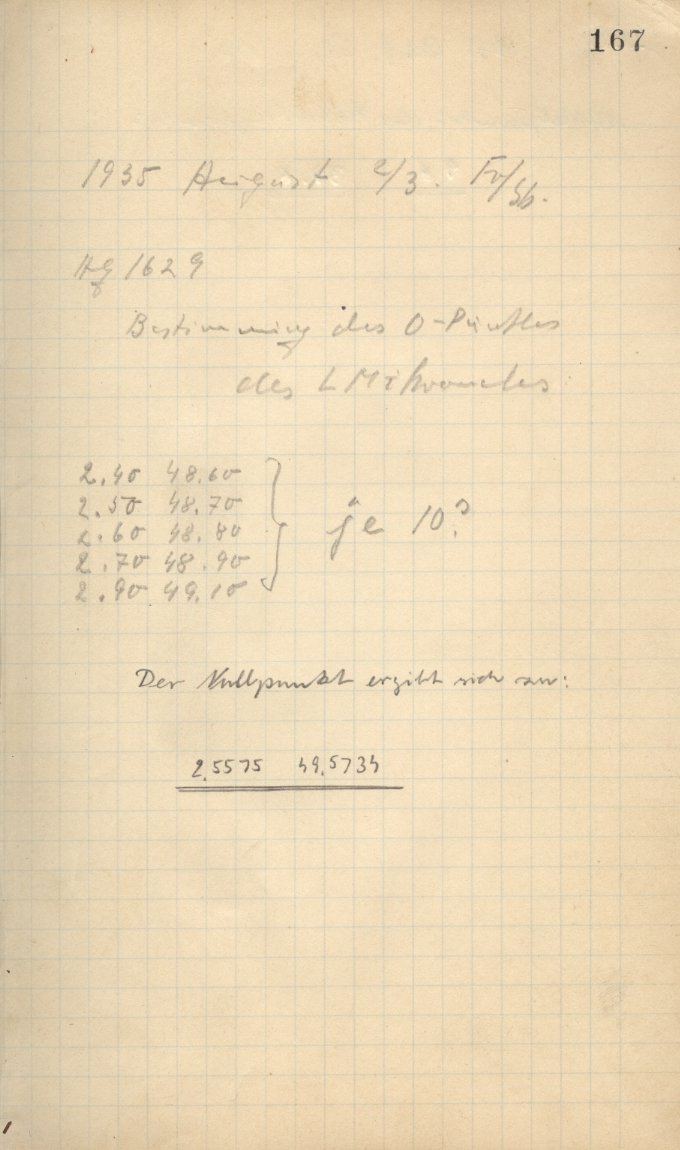 167
1935 August 2/3. Fr/Sb.
Hg 1629
Bestimmung des 0-Punktes
des L Mikrometers
2.40 48.60
2.50 48.70
2.60 48.80 je 10?
2.70 48.90
2.90 49.10
Der Nullpunkt ergibt sich zu:
2.5575 49.5734